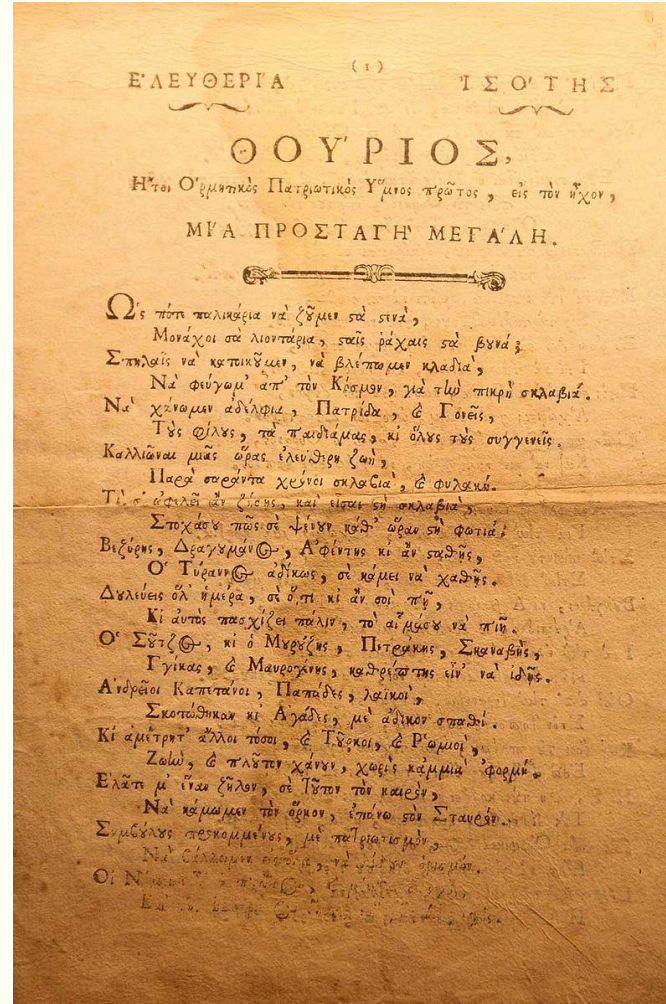 (1)
ἘΛΕΥΘΕΡΊΑ ἸΣΌΤΗΣ
ΘΟΎΡΙΟΣ,
Ἤτοι Ὁρμητικὸς Πατριωτικὸς Ὕμνος πρῶτος, εἰς τὸν ἦχον,
ΜΊΑ ΠΡΟΣΤΑΓῊ ΜΕΓΆΛΗ.
Ὡς πότε παλικάρια νὰ ζȣ͂μεν ϛὰ ϛενὰ,
Μονάχοι σὰ λιοντάρια, ϛαῖς ῥάχαις ϛὰ βȣνά;
Σπηλαῖς νὰ κατοικȣ͂μεν, νὰ βλέπωμεν κλαδιὰ,
Νὰ φεύγωμ' ἀπ' τὸν Κόσμον, γιὰ τὴν πικρὴ σκλαβιά.
Νὰ χάνωμεν ἀδέλφια, Πατρίδα, ϗ Γονεῖς,
Τȣ̀ς φίλȣς, τὰ παιδιάμας, κι ὅλȣς τȣ̀ς συγγενεῖς.
Καλλιῶναι μιᾶς ὥρας ἐλεύθερη ζωὴ,
Παρὰ σαράντα χρόνοι σκλαβιὰ, ϗ φυλακή.
Τὶ σ' ὠφελεῖ ἂν ζήσῃς, καὶ εἶσαι ϛὴ σκλαβιὰ,
Στοχάσȣ πῶς σὲ ψένȣν καθ' ὥραν ϛὴ φωτιά;
Βεζύρης, Δραγȣμάνος, Ἀφέντης κι ἂν ϛαθῇς,
Ὁ Τύραννος ἀδίκως, σὲ κάμει νὰ χαθῇς.
Δȣλεύεις ὅλ' ἡμέρα, σὲ ὅ,τι κι ἂν σοὶ πῇ,
Κι αὐτὸς πασχίζει πάλιν, τὸ αἷμάσȣ νὰ πιῇ.
Ὁ Σȣ͂τζος, κι ὁ Μȣρȣ́ζης, Πετράκης, Σκαναβὴς,
Γγίκας, ϗ Μαυρογένης, καθρέπτης εἶν' νὰ ἰδῇς.
Ἀνδρεῖοι Καπετάνοι, Παπάδες, λαϊκοὶ,
Σκοτώθηκαν κι Ἀγάδες, μὲ ἄδικον σπαθί.
Κι ἀμέτρητ' ἄλλοι τόσοι, ϗ Τȣ͂ρκοι, ϗ Ῥωμιοὶ,
Ζωὴν, ϗ πλȣ͂τον χάνȣν, χωρὶς κἀμμιὰ 'φορμή.
Ἐλᾶτε μ' ἕναν ζῆλον, σὲ Τȣ͂τον τὸν καιρὸν,
Νὰ κάμωμεν τὸν ὅρκον, ἐπάνω ϛὸν Σταυρόν.
Συμβȣ́λȣς προκομμένȣς, μὲ πατριωτισμὸν,